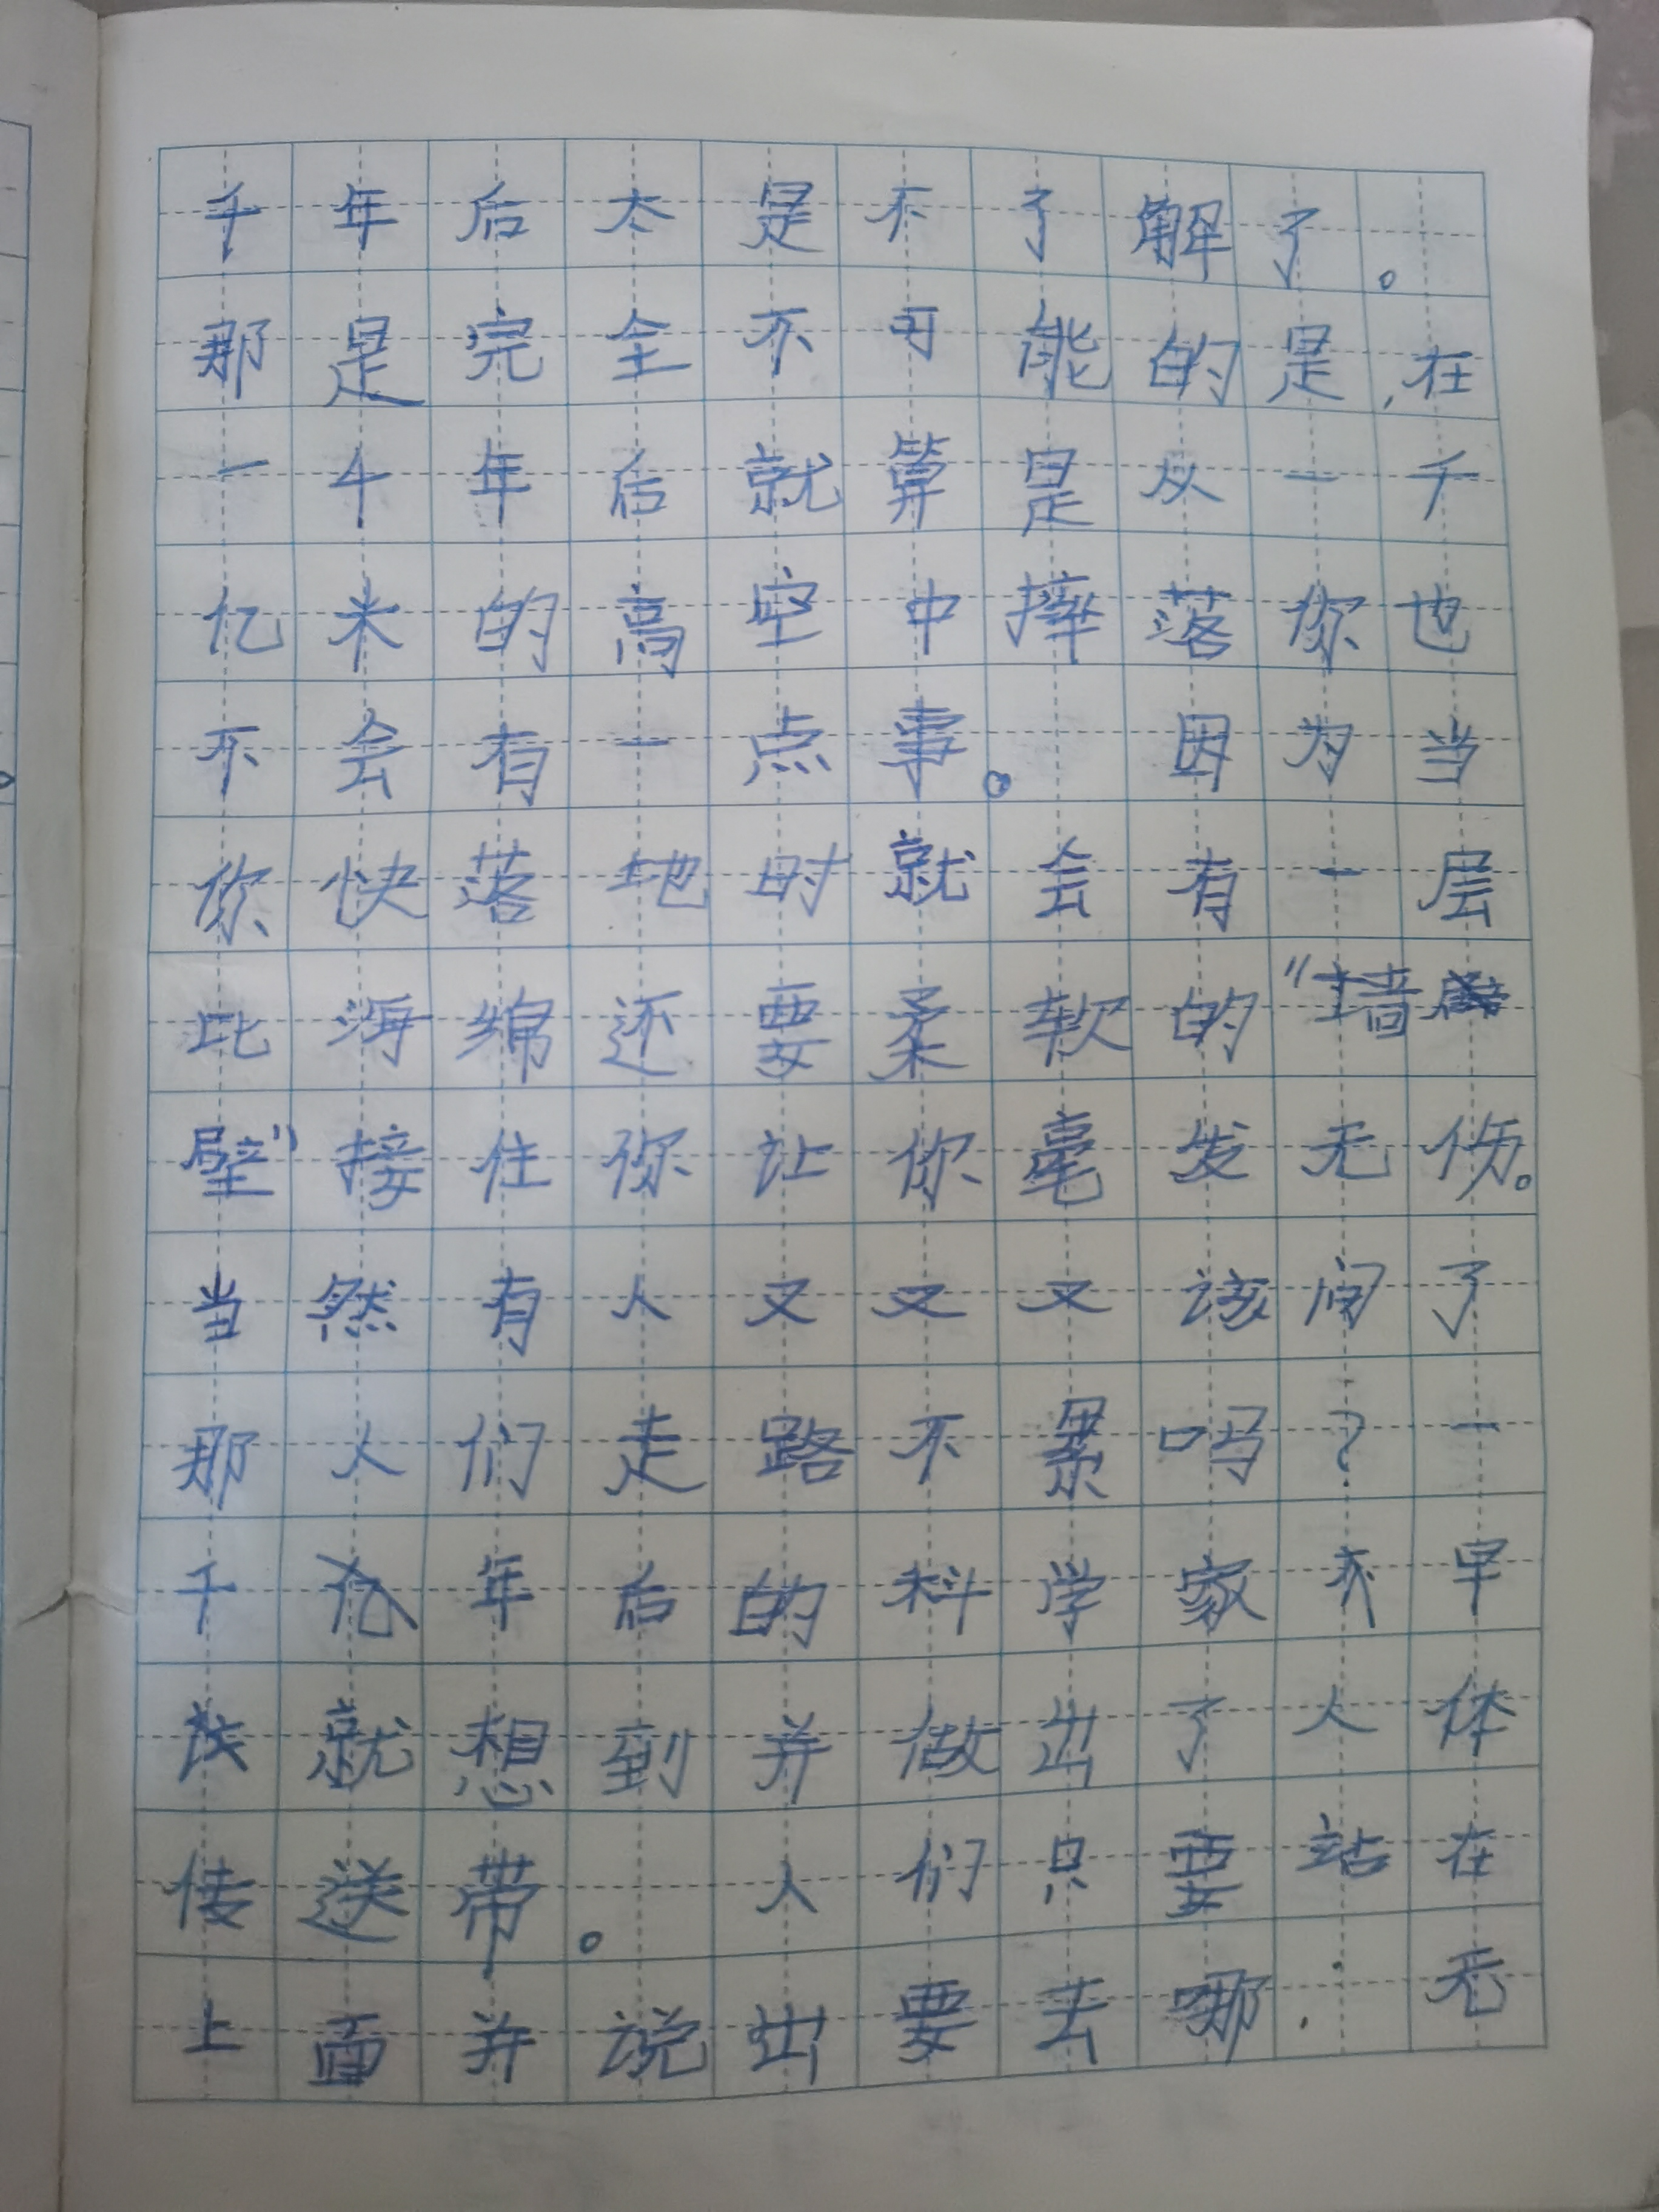 千年后太是不了解了。
那是完全不可能的是,在
一千年后就算是从一千
忆米的高空中摔落你也
不会有一点事。因为当
你快落地时就会有一层
比海绵还要柔软的“墙
壁”接住你让你毫发无伤。
当然有人又又又该问了
那人们走路不累吗?一
千年后的科学家早
就想到并做出了人体
传送带。人们只要站在
上面并说出要去哪.无